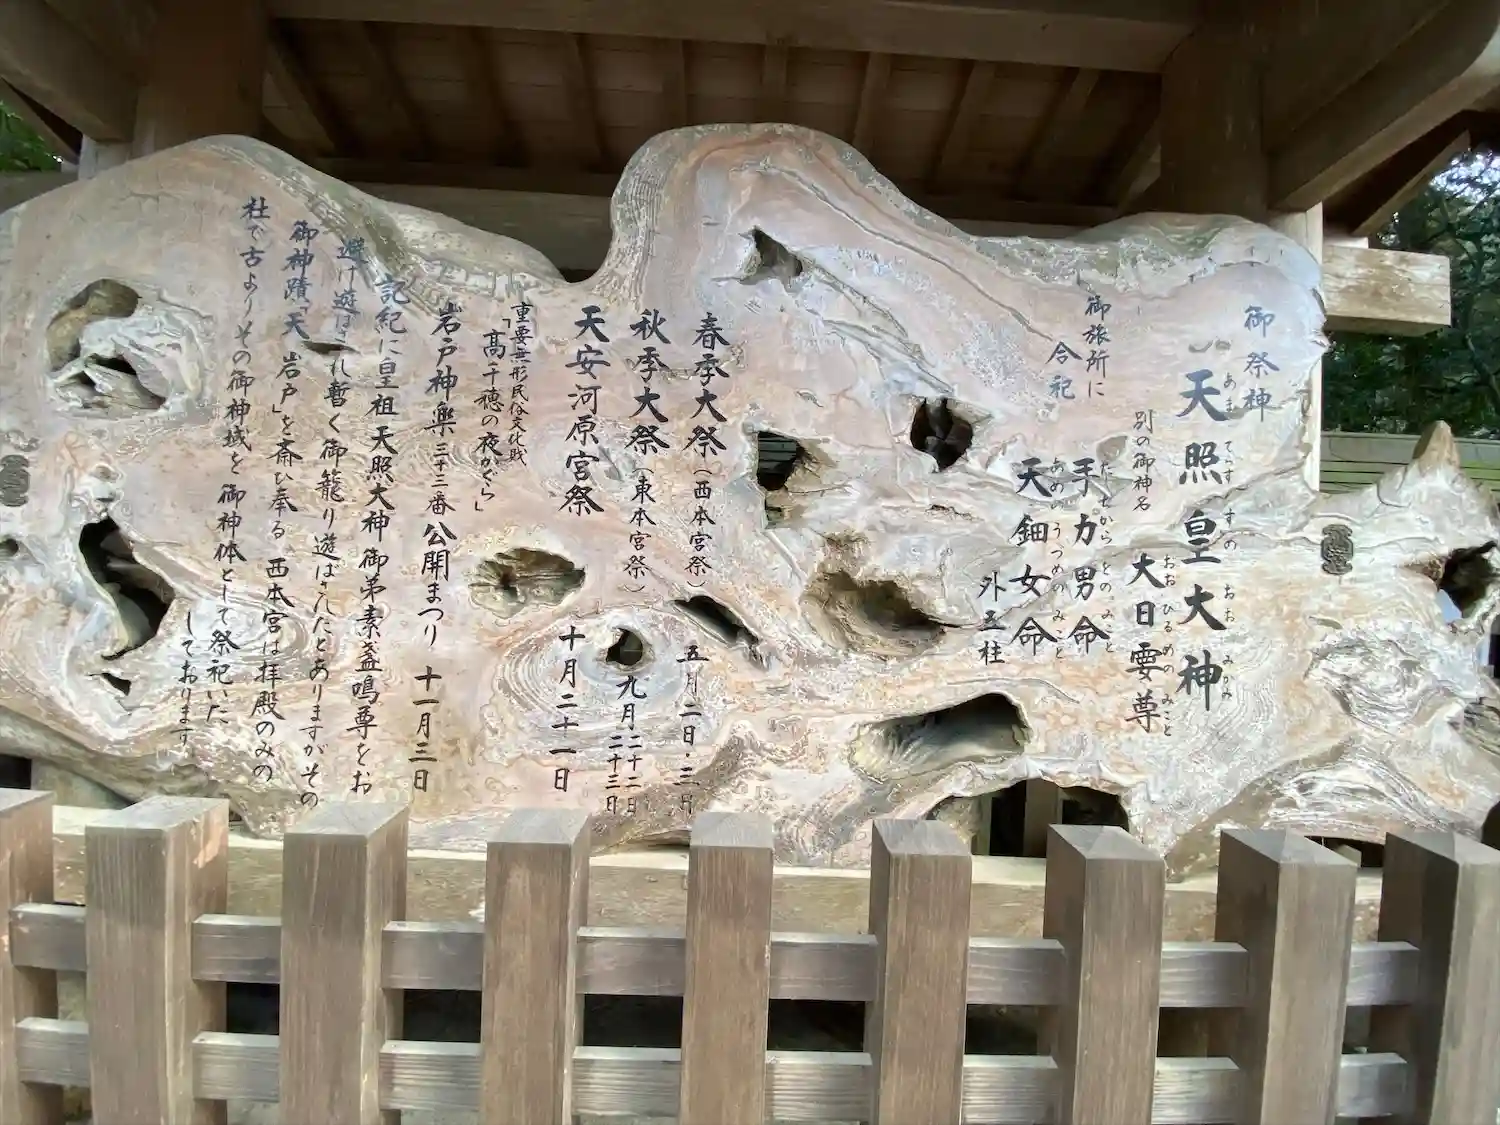 御祭神
天照皇大神
あま てらす すめ おお みかみ
別の御神名 大日孁尊
おおひるめの みこと
御旅所に
合祀
手力男命
たぢからをの みこと
天鈿女命
あめの うづめの みこと
外五柱
春季大祭(西本宮祭) 五月二日・三日
秋季大祭(東本宮祭) 九月二十二日 二十三日
天安河原宮祭 十月二十一日
重要無形民俗文化財
「高千穂の夜かぐら」
岩戸神楽 三十三番 公開まつり 十一月三日
記紀に皇祖天照大神御弟素盞鳴尊をお
避け遊ばされ暫く御籠り遊ばされたとありますがその
御神蹟「天岩戸」を斎ひ奉る 西本宮は拝殿のみの
社で古よりその御神域を御神体として祭祀いた
しております